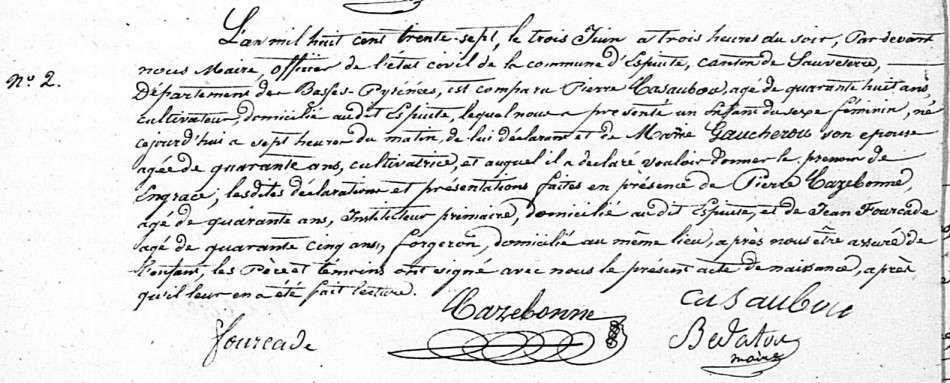 L'an mil huit cent trente-sept, le trois Juin à trois heures du soir, Par devant
nous Maire, Officier de l'état civil de la commune d'Espiute, canton de Sauveterre,
N.º 2.
Département des Basses-Pyrénées, est comparu Pierre Casaubou, agé de quarante huit ans,
cultivateur, domicilié audit Espiute, lequel nous a présenté un enfant du sexe féminin, né
cejourd'hui a sept heures du matin, de lui déclarant et de Marie Gaucherou son epouse
agée de quarante ans, cultivatrice, et auquel il a déclaré vouloir donner le prenom de
Engrace; lesdites déclaration et présentations faites en présence de Pierre Cazebonne,
agé de quarante ans, Instituteur primaire, domicilié audit Espiute, et de Jean Fourcade
agé de quarante cinq ans, forgeron, domicilié au même lieu, après nous être assuré de
l'enfant, les Père et témoins ont signé avec nous le présent acte de naissance, après
qu'il leur en a été fait lecture.
Cazebonne
casaubou
fourcade
maire